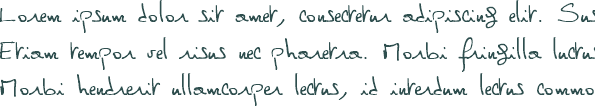 Lorem ipsum dolor sit amet, consectetur adipiscing elit. Sus
Etiam tempor vel risus nec pharetra. Morbi fringilla luctus
Morbi hendrerit ullamcorper lectus, id interdum lectus commo